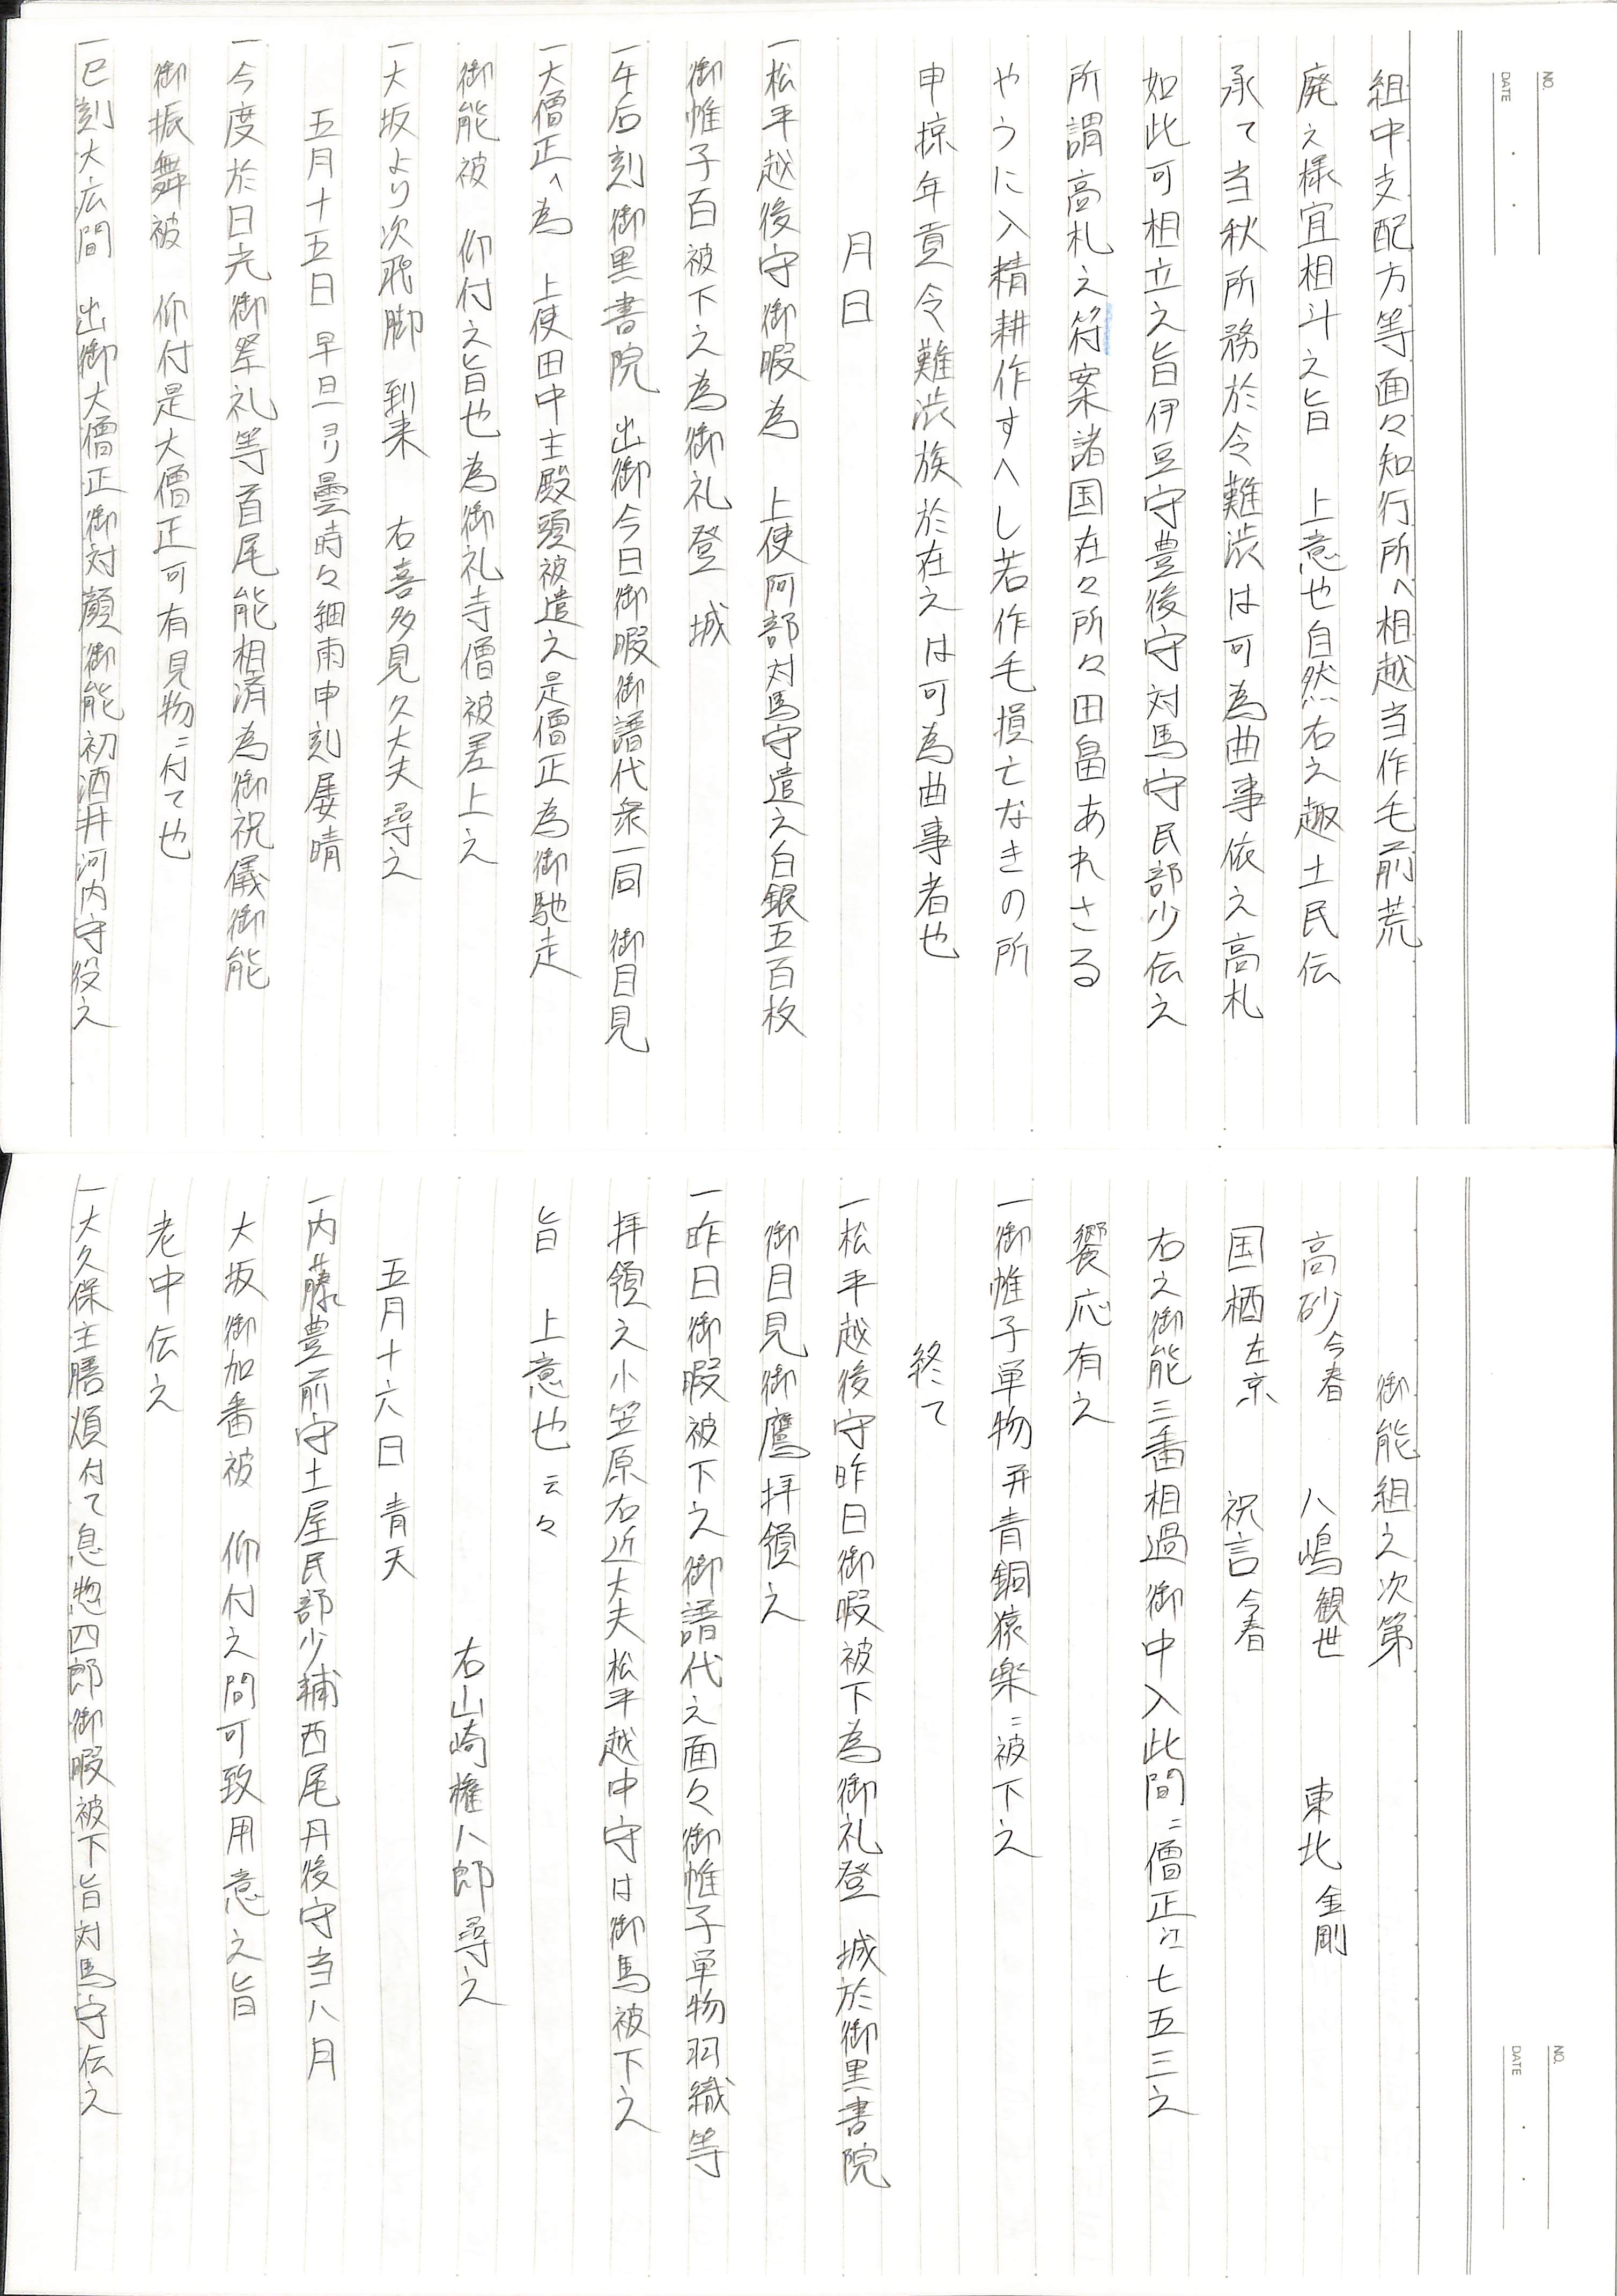 NO.
DATE ・ ・
組中支配方等面々知行所へ相越当作毛前荒
廃之様宜相斗之旨 上意也自然右之趣土民伝
承て当秋所務於令難渋は可為曲事依之高札
如此可相立之旨伊豆守豊後守対馬守民部少伝之
所謂高札之符案諸国在々所々田畠あれさる
やうに入精耕作すへし若作毛損亡なきの所
申掠年貢令難渋族於在之は可為曲事者也
月日
一松平越後守御暇為 上使阿部対馬守遣之白銀五百枚
御帷子百被下之為御礼登 城
一午后刻御黒書院 出御今日御暇御譜代衆一同 御目見
一大僧正へ為 上使田中主殿頭被遣之是僧正為御馳走
御能被 仰付之旨也為御礼寺僧被差上之
一大坂より次飛脚 到来 右喜多見久大夫尋之
五月十五日 早旦ヨリ曇時々細雨申刻屡晴
一今度於日光御祭礼等首尾能相済為御祝儀御能
御振舞被 仰付是大僧正可有見物ニ付て也
一巳刻大広間 出御大僧正御対顔御能初酒井河内守役之
NO.
DATE ・ ・
御能組之次第
高砂 今春 八嶋 観世 東北 金剛
国栖 左京 祝言 今春
右之御能三番相過御中入此間ニ僧正江七五三之
饗応有之
一御帷子単物并青銅猿楽ニ被下之
終て
一松平越後守昨日御暇被下為御礼登 城於御黒書院
御目見御鷹拝領之
一昨日御暇被下之御譜代之面々御帷子単物羽織等
拝領之小笠原右近大夫松平越中守は御馬被下之
旨 上意也云々
右山崎権八郎尋之
五月十六日 青天
一内藤豊前守土屋民部少輔西尾丹後守当八月
大坂御加番被 仰付之間可致用意之旨
老中伝之
一大久保主膳煩付て息惣四郎御暇被下旨対馬守伝之